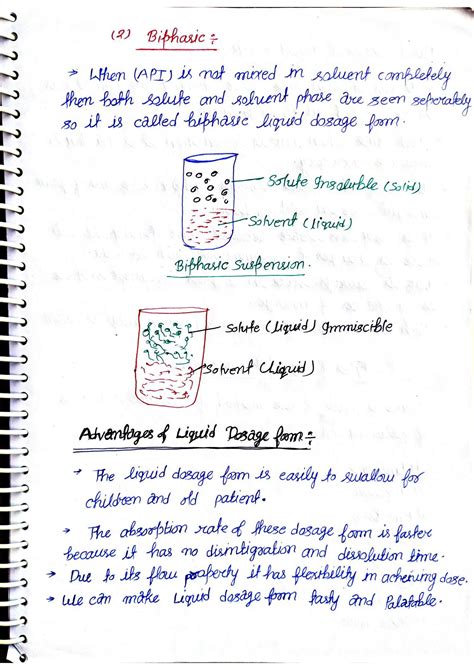 (2) Biphasic :-
→ When (API) is not mixed in soluent completely
then both solute and soluent phase are seen seperately
so it is called biphasic liquid dosage form.
Solute Insoluble (Solid)
Solvent (liquid)
Biphasic Suspension.
Solute (liquid) Immiscible
Solvent (liquid)
Advantages of Liquid Dosage form :-
→ The liquid dosage form is easily to swallow for
children and old patient.
→ The absorption rate of these dosage form is faster
because it has no disintigration and dissolution time.
→ Due to its flow property it has flexibility in acheiving dose.
→ We can make liquid dosage form tasty and Palatable.